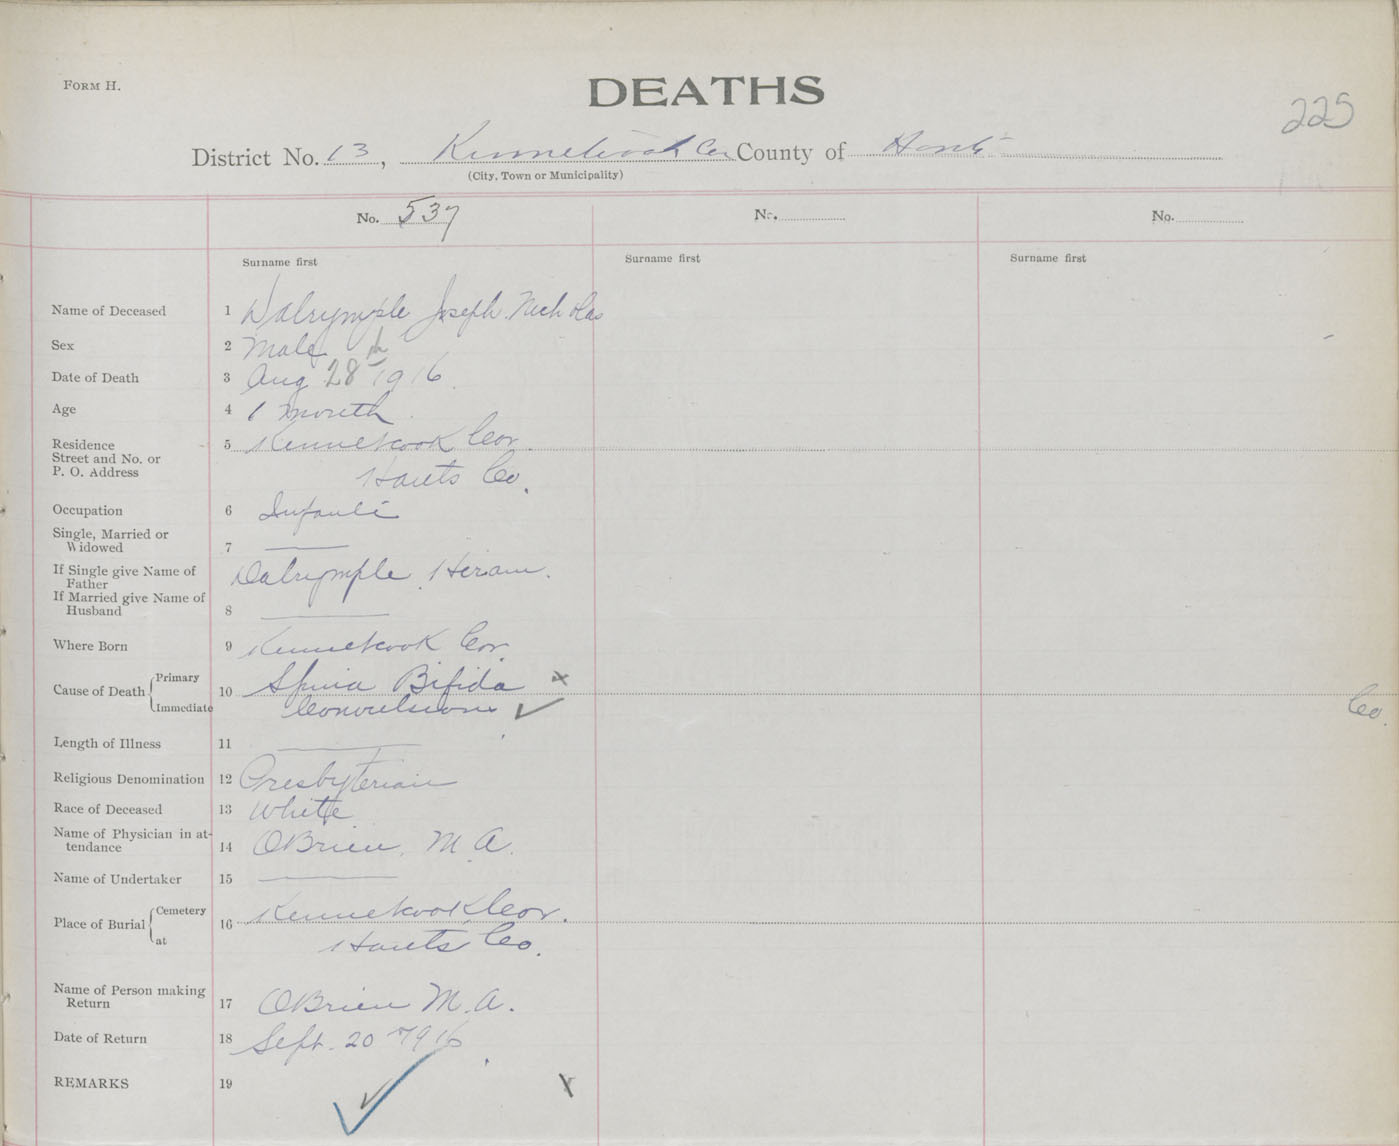 FORM H.
DEATHS
225
District No. 13, Kennetcook Cor County of Hants
(City, Town or Municipality)
No. 537 No. No.
Surname first Surname first Surname first
Name of Deceased 1 Dalrymple Joseph Nicholas
Sex 2 Male
Date of Death 3 Aug 28th 1916.
Age 4 1 month.
Residence 5 Kennetcook Cor.
Street and No. or
P. O. Address Hants Co.
Occupation 6 Infant
Single, Married or
Widowed 7
If Single give Name of
Father Dalrymple Hiram.
If Married give Name of
Husband 8
Where Born 9 Kennetcook Cor.
Cause of Death Primary 10 Spina Bifida x
Immediate Convulsions ✓
Co.
Length of Illness 11
Religious Denomination 12 Presbyterian
Race of Deceased 13 White
Name of Physician in at-
tendance 14 OBrien, M.A.
Name of Undertaker 15
Place of Burial Cemetery 16 Kennetcook Cor.
at Hants Co.
Name of Person making
Return 17 OBrien M.A.
Date of Return 18 Sept. 20 1916
REMARKS 19 ✓ x